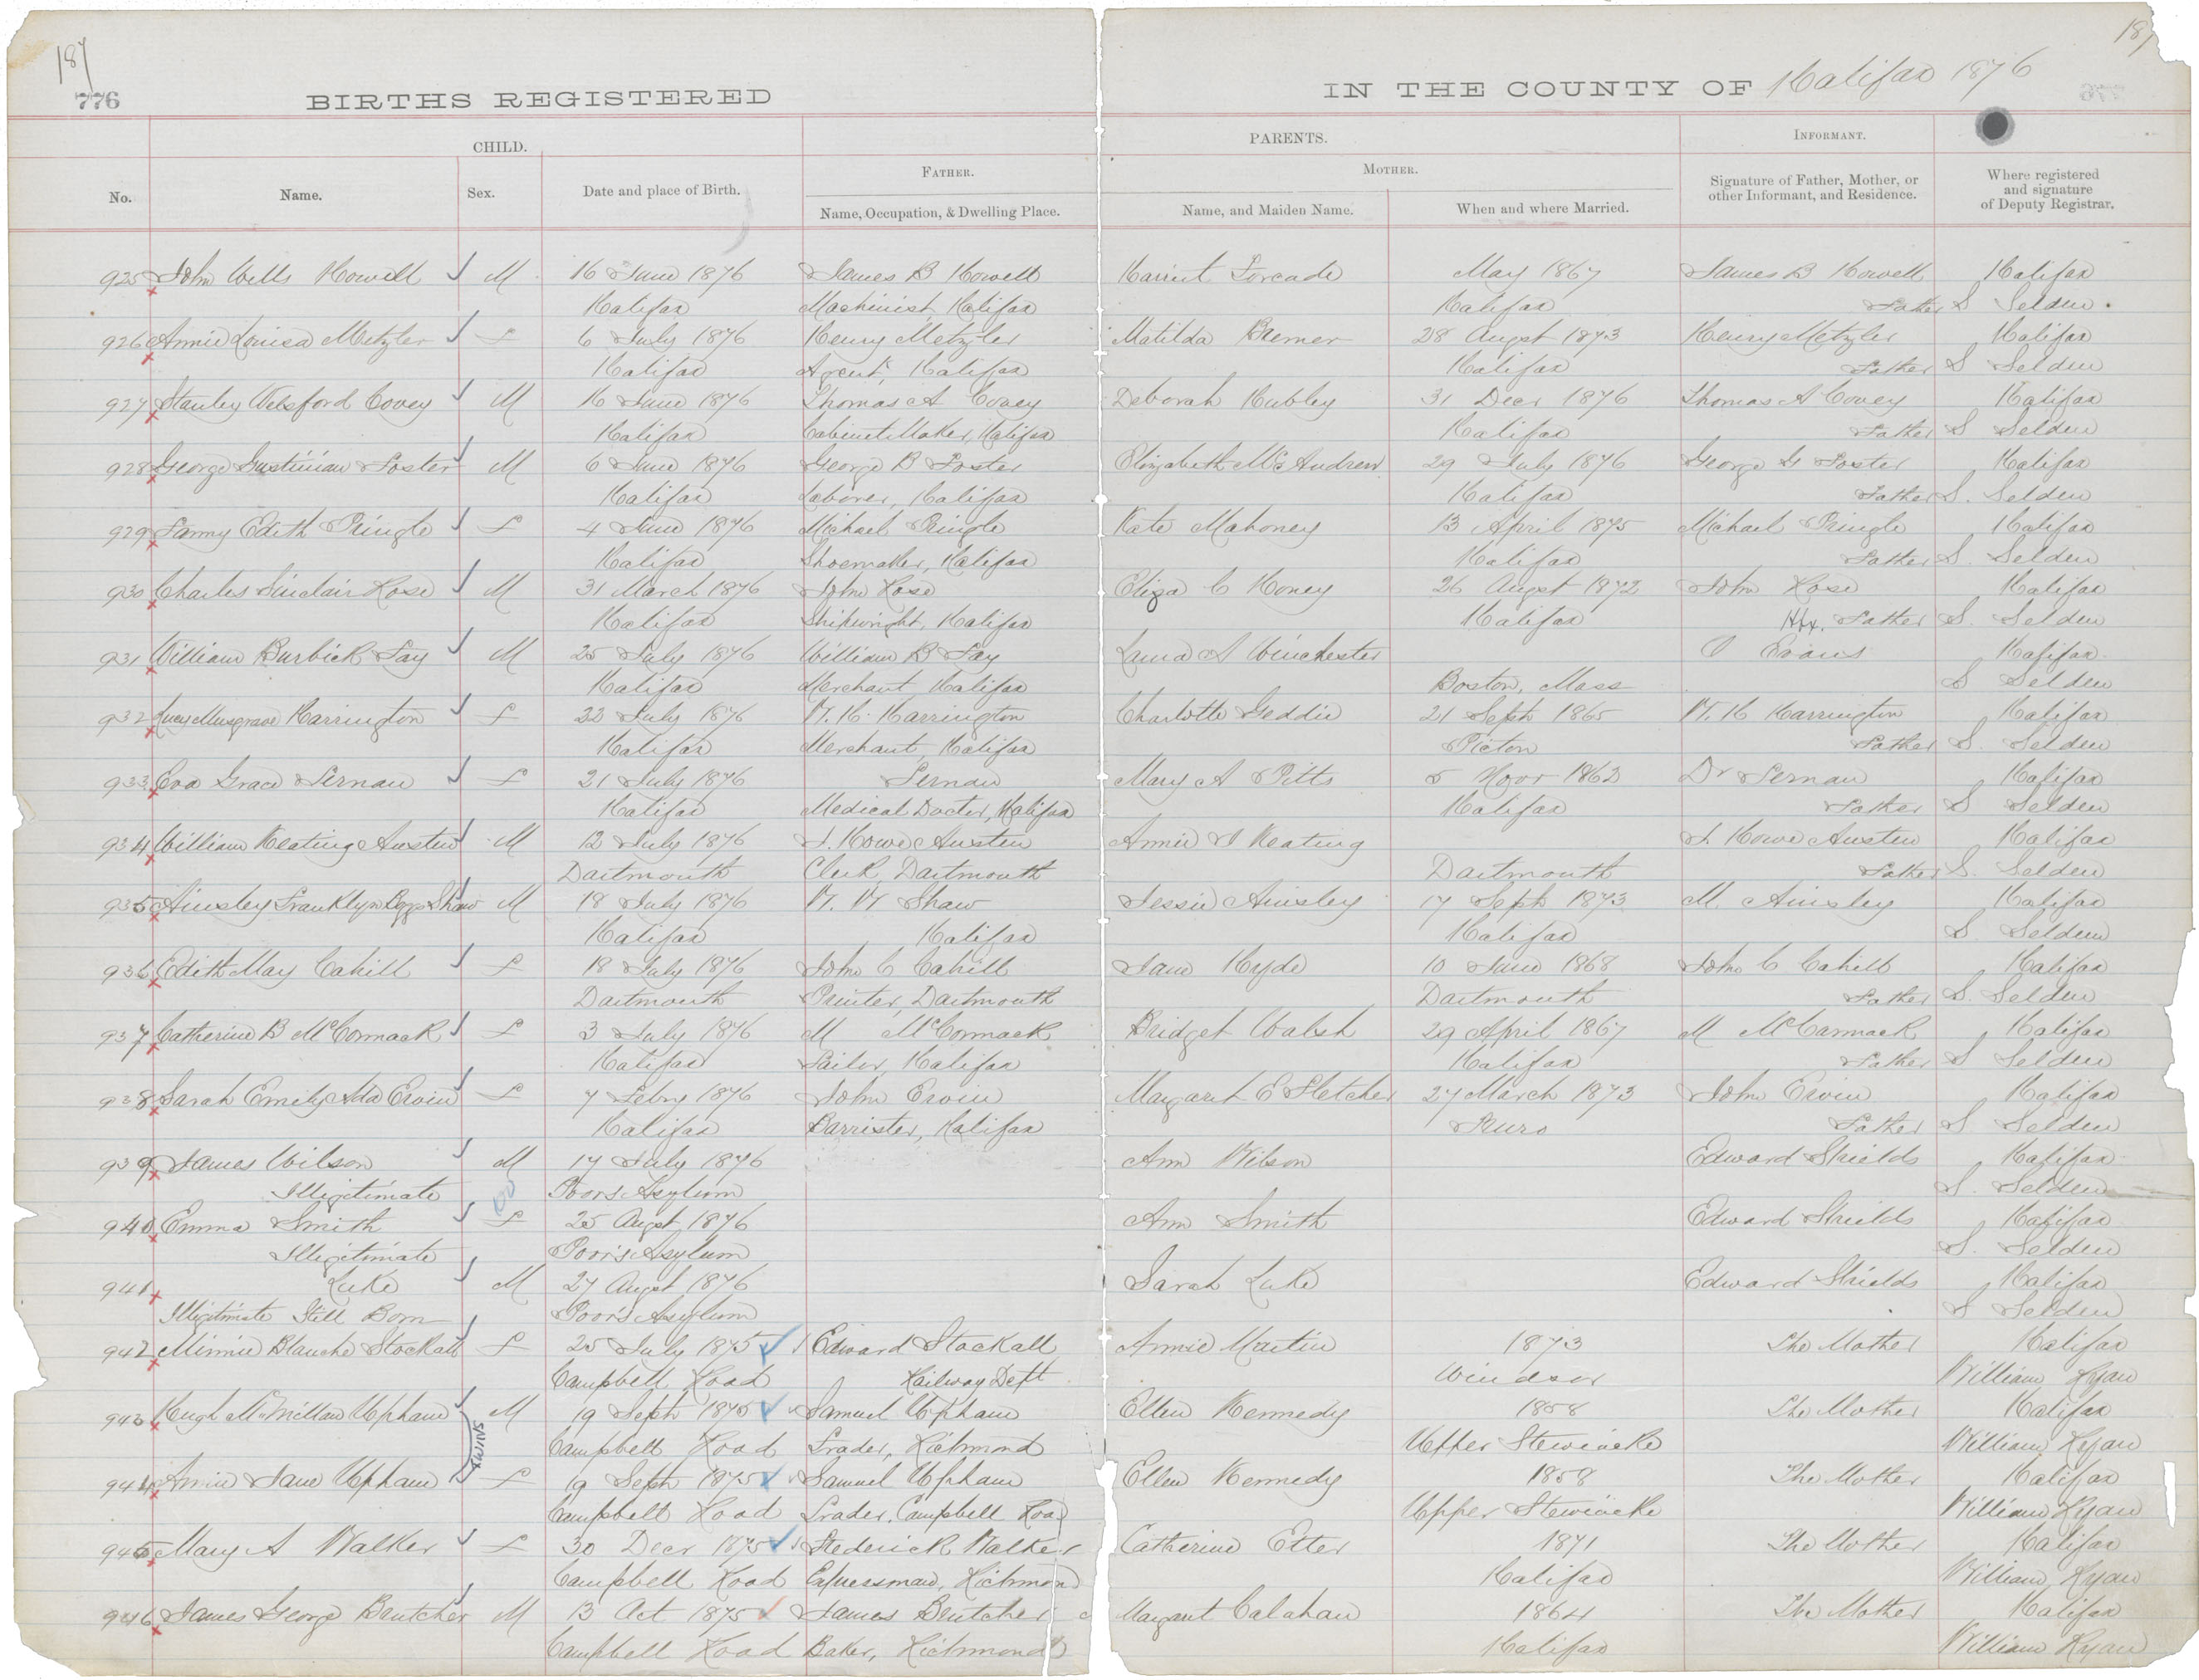 187
187
776
BIRTHS REGISTERED IN THE COUNTY OF Halifax 1876
CHILD. PARENTS. INFORMANT.
FATHER. MOTHER.
No. Name. Sex. Date and place of Birth. Name, Occupation, & Dwelling Place. Name, and Maiden Name. When and where Married. Signature of Father, Mother, or other Informant, and Residence. Where registered and signature of Deputy Registrar.
925 John Wells Howell M 16 June 1876 James B Howell Harriet Forcade May 1867 James B Howell Halifax
Halifax Machinist, Halifax Halifax Father S Selden
926 Annie Louisa Metzler F 6 July 1876 Henry Metzler Matilda Bremer 28 Augst 1873 Henry Metzler Halifax
Halifax Agent, Halifax Halifax Father S Selden
927 Stanley Welsford Covey M 16 June 1876 Thomas A Covey Deborah Hubley 31 Decr 1876 Thomas A Covey Halifax
Halifax Cabinet Maker, Halifax Halifax Father S Selden
928 George Foster M 6 June 1876 George B Foster Elizabeth McAndrew 29 July 1876 George G Foster Halifax
Halifax Laborer, Halifax Halifax Father S. Selden
929 Fanny Edith Pringle F 4 June 1876 Michael Pringle Kate Mahoney 13 April 1875 Michael Pringle Halifax
Halifax Shoemaker, Halifax Halifax Father S. Selden
930 Charles Sinclair Rose M 31 March 1876 John Rose Eliza C Honey 26 Augst 1872 John Rose Halifax
Halifax Shipwright, Halifax Halifax Hfx. Father S. Selden
931 William Burbick Fay M 25 July 1876 William B Fay Laura A Winchester O Evans Halifax
Halifax Merchant, Halifax Boston, Mass S Selden
932 Lucy Musgrave Harrington F 22 July 1876 W. H. Harrington Charlotte Geddie 21 Septr 1865 W. H Harrington Halifax
Halifax Merchant, Halifax Picton Father S. Selden
933 Eva Grace Fernau F 21 July 1876 Fernau Mary A Pitts 5 Novr 1862 Dr Fernau Halifax
Halifax Medical Doctor, Halifax Halifax Father S Selden
934 William Keating Austen M 12 July 1876 J. Howe Austen Annie I Keating J. Howe Austen Halifax
Dartmouth Clerk, Dartmouth Dartmouth Father S. Selden
935 Ainsley Franklyn Shaw M 18 July 1876 W. W Shaw Jessie Ainsley 17 Septr 1873 M. Ainsley Halifax
Halifax Halifax Halifax S. Selden
936 Edith May Cahill F 18 July 1876 John C Cahill Jane Hyde 10 June 1868 John C Cahill Halifax
Dartmouth Printer, Dartmouth Dartmouth Father S. Selden
937 Catherine B McCormack F 3 July 1876 M McCormack Bridget Walsh 29 April 1867 M McCarmack Halifax
Halifax Tailor, Halifax Halifax Father S Selden
938 Sarah Emily Ada Ervin F 7 Febry 1876 John Ervin Margaret E Fletcher 27 March 1873 John Ervin Halifax
Halifax Barrister, Halifax Truro Father S Selden
939 James Wilson M 17 July 1876 Ann Wilson Edward Shields Halifax
Illigitimate Poors Asylum S. Selden
940 Emma Smith F 25 Augst 1876 Ann Smith Edward Shields Halifax
Illigitimate Poor's Asylum S. Selden
941 Luke M 27 Augst 1876 Sarah Luke Edward Shields Halifax
Illigitimate Still Born Poor's Asylum S Selden
942 Minnie Blanche Stockall F 25 July 1875 Edward Stockall Annie Martin 1873 The Mother Halifax
Campbell Road Railway Dept Windsor William Ryan
943 Hugh McMillan Upham M 19 Septr 1875 Samuel Upham Ellen Kennedy 1858 The Mother Halifax
Twins
Campbell Road Trader, Richmond Upper Stewiacke William Ryan
944 Annie Jane Upham F 19 Septr 1875 Samuel Upham Ellen Kennedy 1858 The Mother Halifax
Campbell Road Trader. Campbell Road Upper Stewiacke William Ryan
945 Mary A Walker F 30 Decr 1875 Frederick Walker Catherine Etter 1871 The Mother Halifax
Campbell Road Expressman, Richmond Halifax William Ryan
946 James George Brutcher M 13 Oct 1875 James Brutcher Margaret Calahan 1864 The Mother Halifax
Campbell Road Baker, Richmond Halifax William Ryan